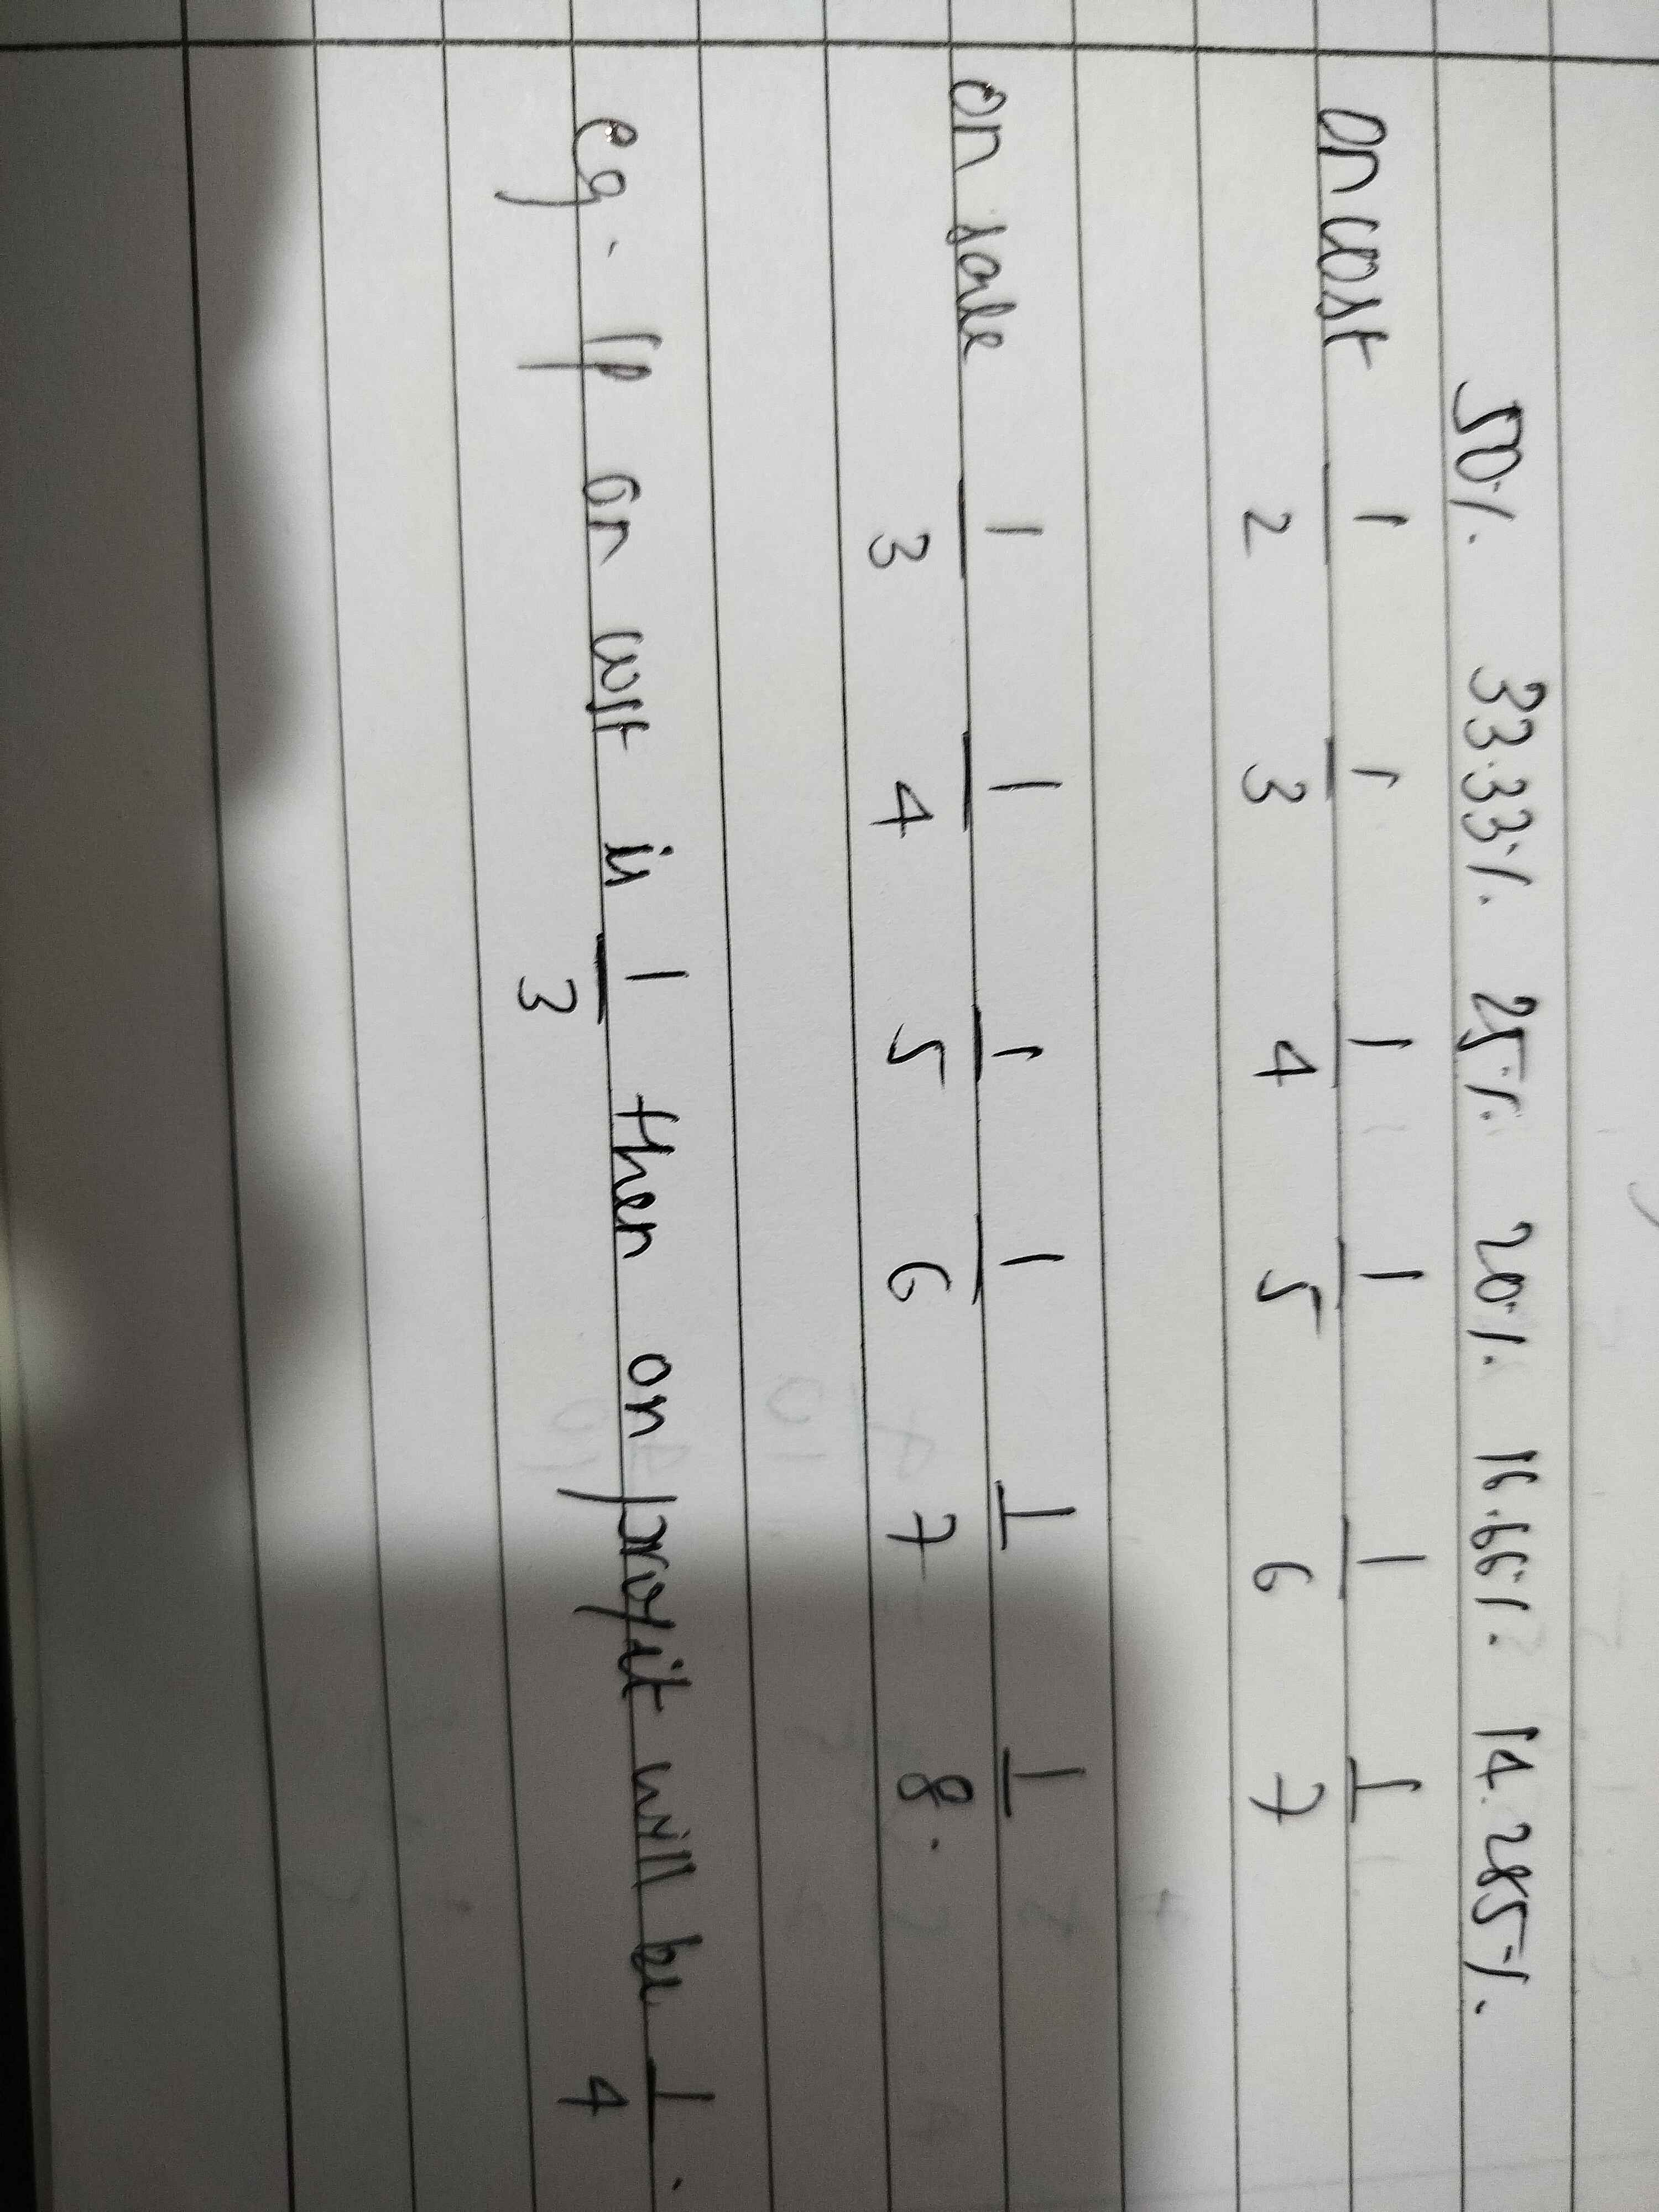 50% 33.33% 25% 20% 16.66% 14.285%
on cost 1/2 1/3 1/4 1/5 1/6 1/7
on sale 1/3 1/4 1/5 1/6 1/7 1/8.
eg. If on cost is 1/3 then on profit will be 1/4.